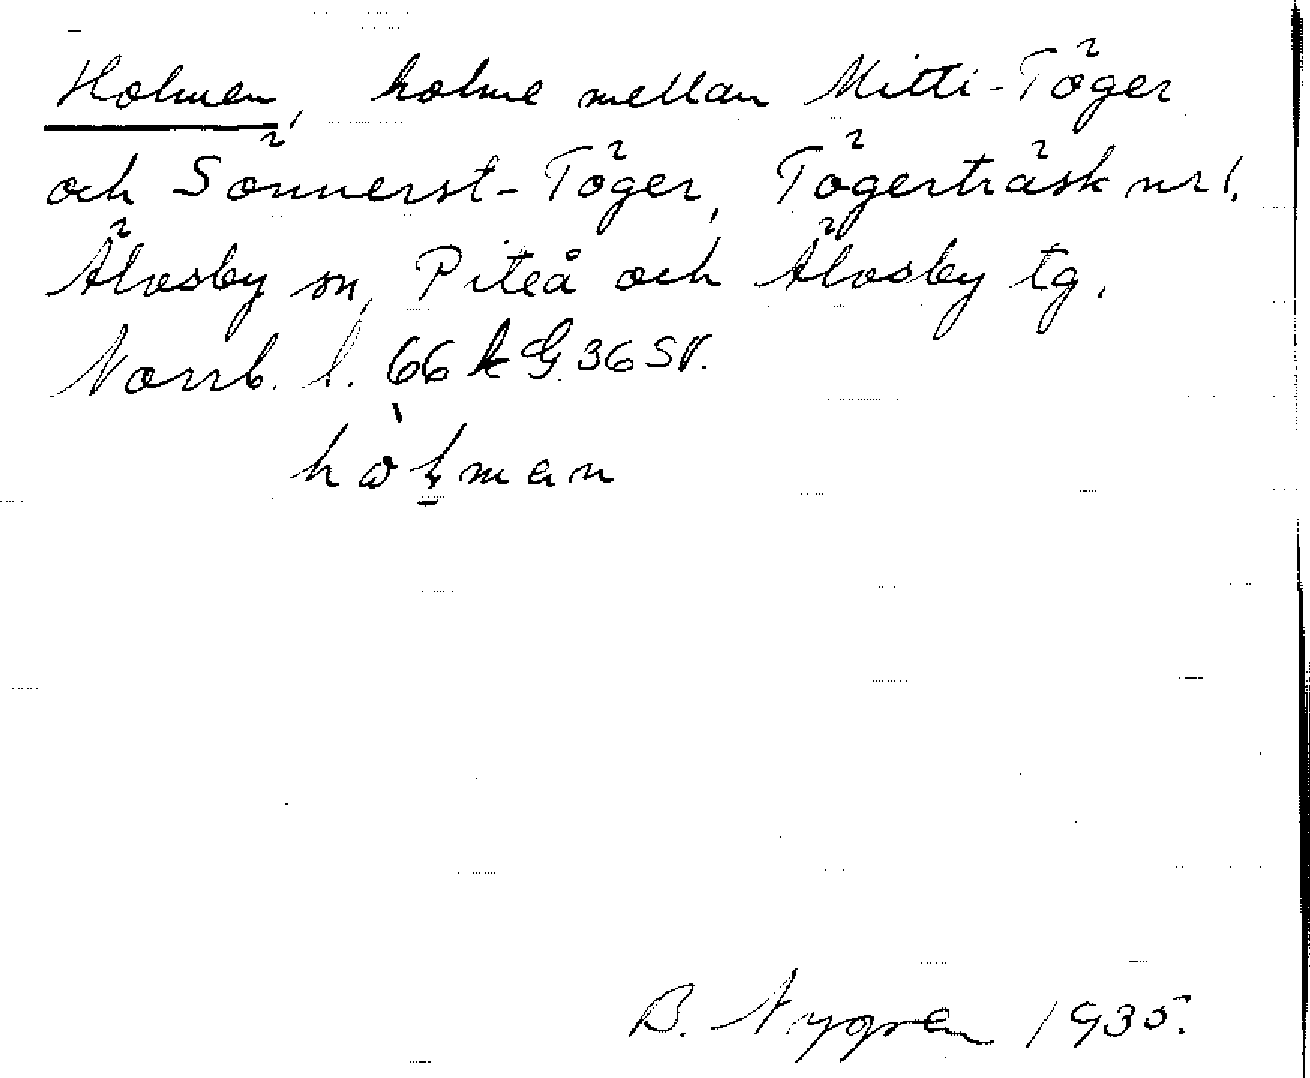 Holmen, holme mellan Mitti-Töger
och Sönnerst-Töger, Tögerträsk nr 1.
Älvsby sn, Piteå och Älvsby tg.
Norrb. l. 66 k G. 36 SV.
hò̵ł̠man
B. Nygren 1935.